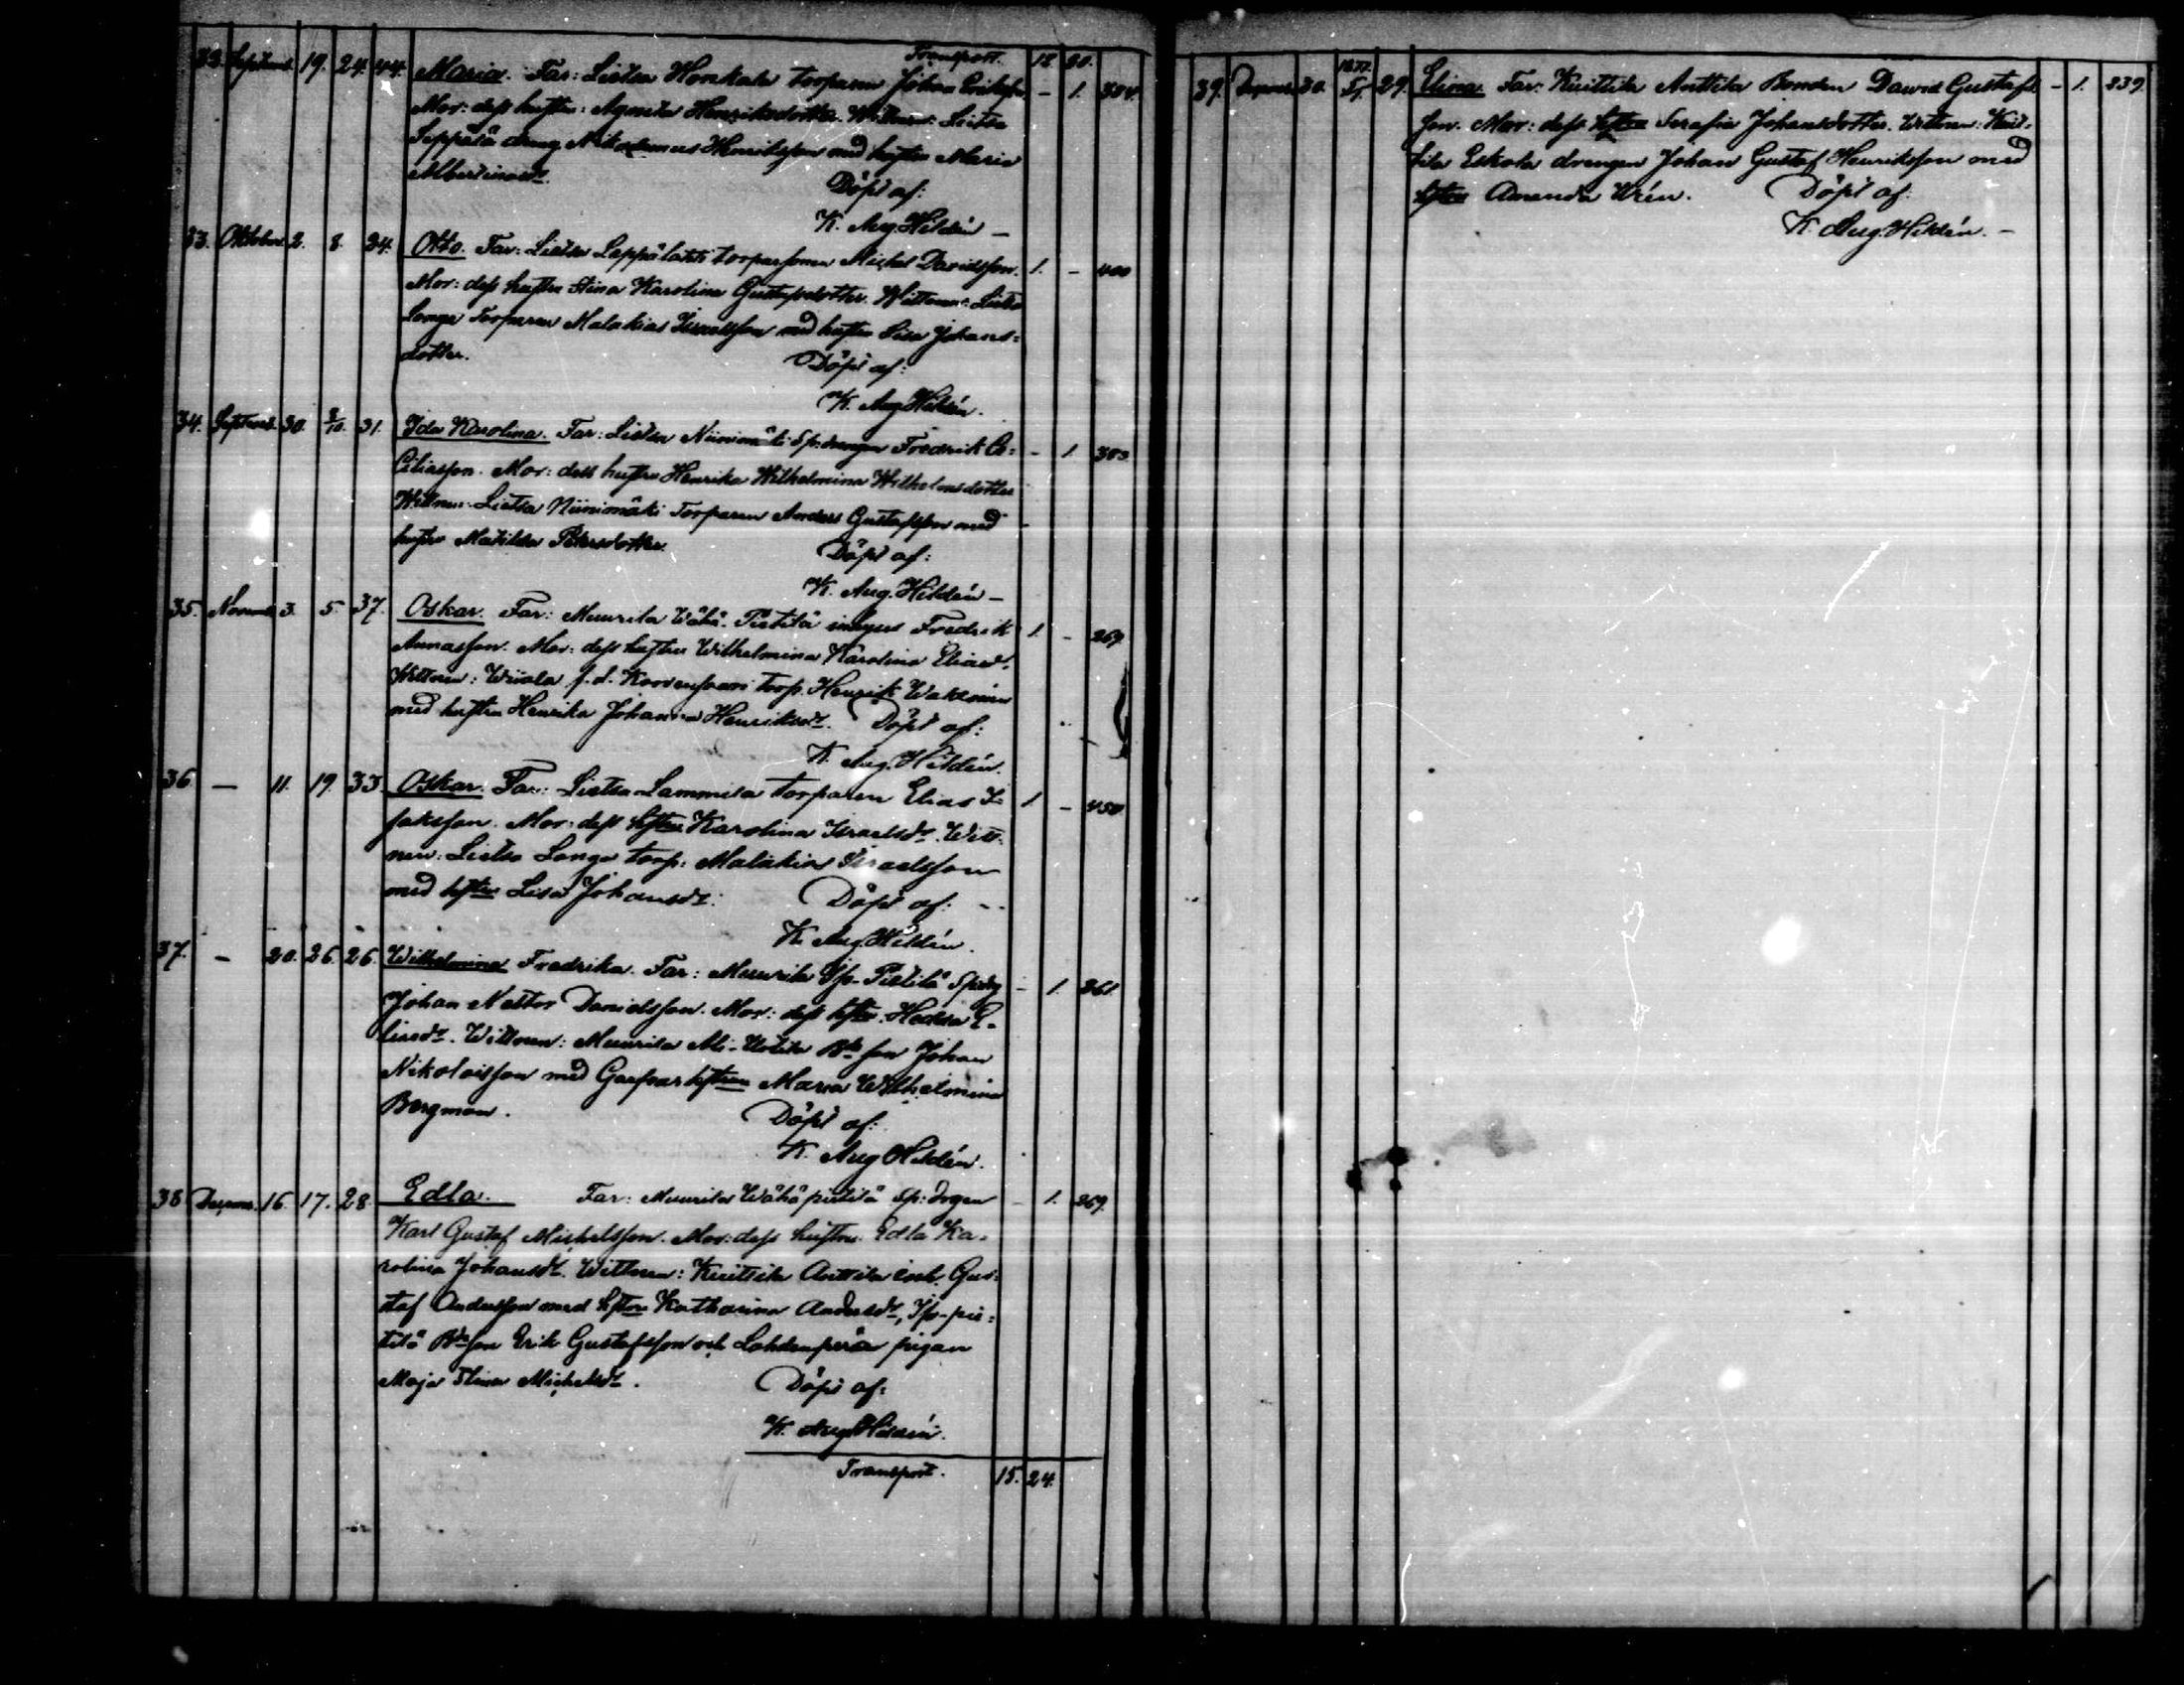 Transport. 12 20.
32. Septemb. 19. 24. 44. Maria. Far: Lietsa Honkala torparen Johan Eriksson - 1. 304.
Mor: dess hustru: Agneta Henriksdotter. Wittnen: Lietsa
Seppälä dreng Nikodemus Henriksson med hustru Maria
Albertinadr.
Döpt af:
K. Aug. Hildén -
33. Oktober 2. 8. 24. Otto. Far: Lietsa Leppälahti torparsonen Michel Davidsson. 1. - 400
Mor: dess hustru Stina Karolina Gustafsdotter. Wittnen: Lietsa
Longa Torparen Malakias Israelsson med hustru Lisa Johans=
dotter.
Döpt af:
K. Aug. Hildén.
34. Septemb. 30. 3/10. 31. Ida Karolina. Far: Lietsa Niinimäki Sp: drengen Fredrik Ce= - 1 383.
ciliasson. Mor: dess hustru Henrika Wilhelmina Wilhelmsdotter
Wittnen: Lietsa Niinimäki Torparen Anders Gustafsson med
hustru Matilda Petersdotter.
Döpt af:
K. Aug. Hildén -
35. Novemb. 3. 5. 37. Oskar. Far: Muurila Wähä-Pietilä inhyses Fredrik 1. - 269.
Annasson. Mor: dess hustru Wilhelmina Karolina Eliasd.
Wittnen: Wiiala f.d. Korvensaari torp. Henrik
med hustru Henrika Johanna Henriksdr. Döpt af:
K. Aug. Hildén.
36 — 11. 19. 33. Oskar. Far: Lietsa Lammila torparen Elias I= 1. - 450
saksson. Mor: dess hustru Karolina Israelsdr. Witt=
nen: Lietsa Longa torp: Malakias Israelsson
med hustru Lisa Johansdr: Döpt af: --
K. Aug. Hildén.
37. - 20. 26. 26. Wilhelmina Fredrika. Far: Muurila Yp-Pietilä Spdrg - 1. 261.
Johan Nestor Danielsson. Mor: dess hustru Hedda E=
liasdr. Wittnen: Muurila Ali-Uotila Bd son Johan
Nikolaisson med hustrun Maria Wilhelmina
Bergman.
Döpt af:
K. Aug Hildén.
38 Decemb. 16. 17. 28. Edla. Far: Muurila Wähäpietilä Sp: drgen - 1. 269.
Karl Gustaf Michelsson. Mor: dess hustru Edla Ka=
rolina Johansdr. Wittnen: Kuittila Anttila inh. Gus=
taf Andersson med hustru Katharina Andersdr, Yp-pie=
tilä Bdson Erik Gustafsson och Lahdenperä pigan
Maja Stina Michelsdr.
Döpt af:
K. Aug. Hildén.
Transport. 15. 24.
39. Decemb. 30. 29. Elina. Far: Kuittila Anttila Bonden David Gustafs - 1. 239.
son. Mor: dess hustru Serafia Johansdotter. Wittnen: Kuit=
tila Eskola drengen Johan Gustaf Henriksson med
hustru Amanda Wrén. Döpt af:
K. Aug. Hildén. -